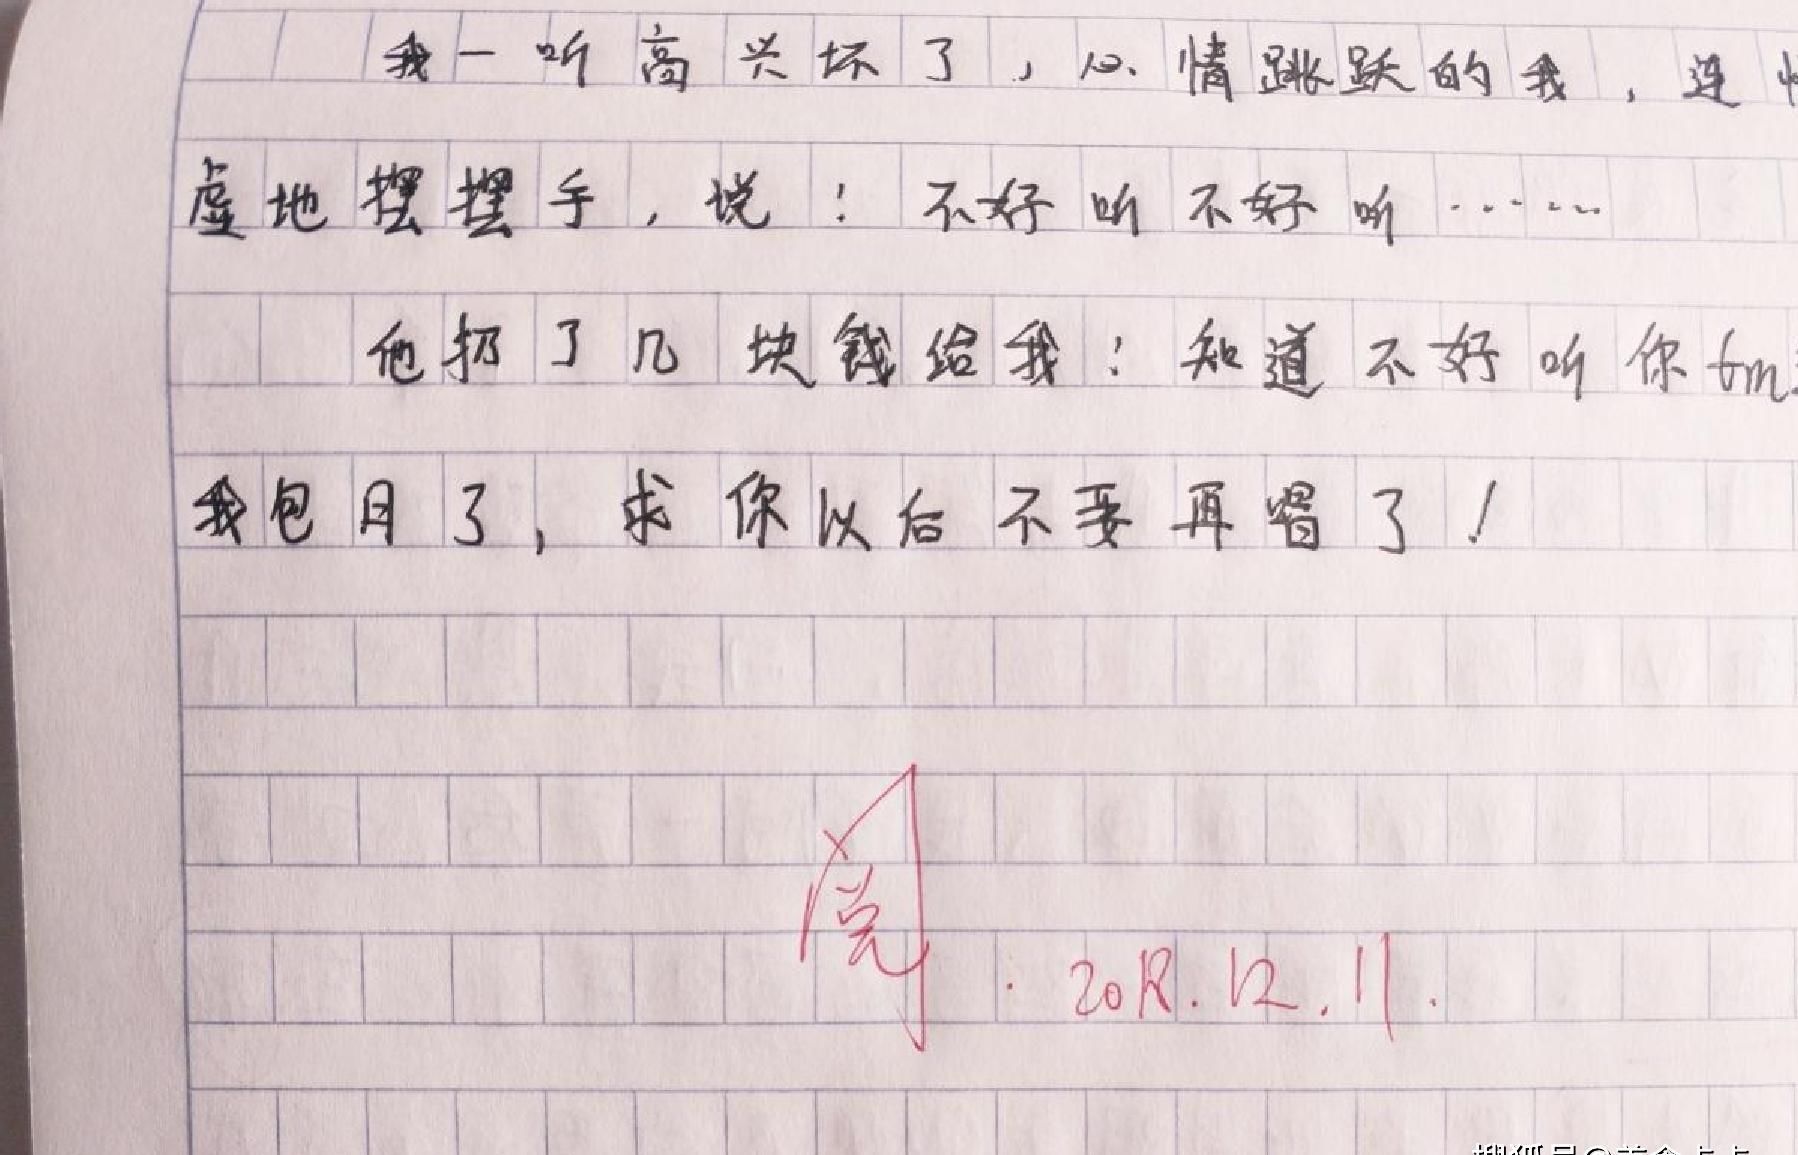 我一听高兴坏了，心情跳跃的我，连
虚地摆摆手，说：不好听不好听……
他扔了几块钱给我：知道不好听你tm
我包月了，求你以后不要再唱了！
阅
.2018.12.11.
搜狐号@美食点点